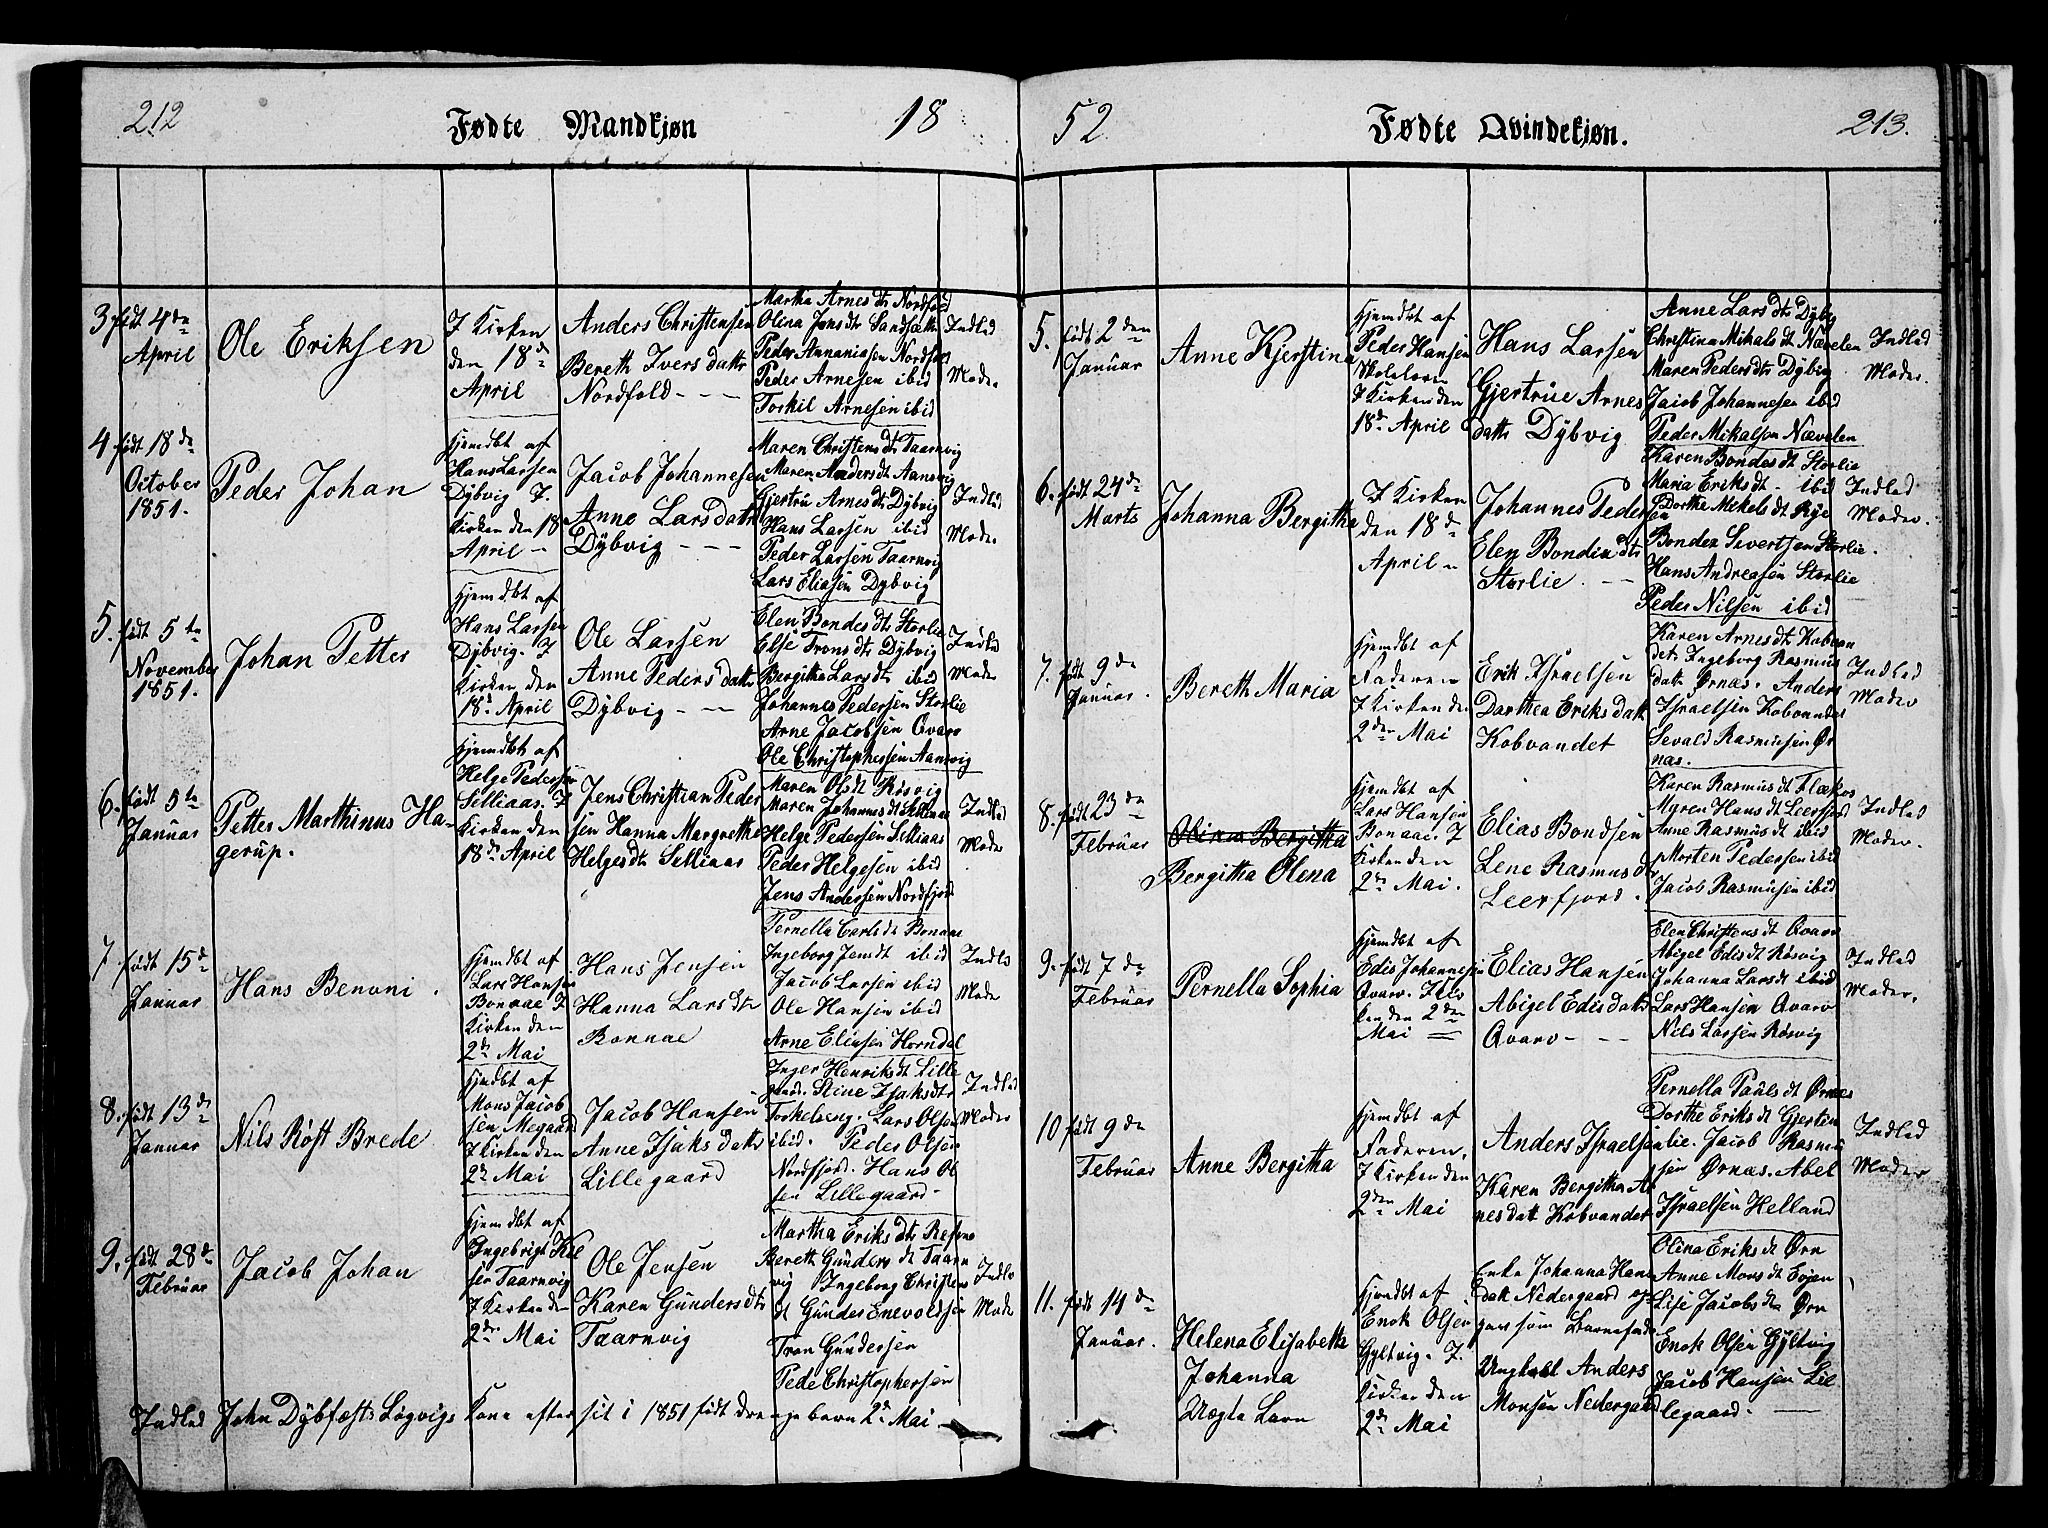 212
Fødte Mandkjøn
18
3. født 4de
April
Ole Eriksen
I Kirken
den 18de
April
Anders Christensen
Bereth Iversdattr
Nordfold - - -
Martha Arnesdtr Nordfold
Olena Jonsdtr
Peder Annaniasen Nordfold
Peder Arnesen ibid
Torkil Arnesen ibid
Indled
Moder
4 født 18de
October
1851.
Peder Johan
Hjemdbt af
Hans Larsen
Dybvig I
Kirken den 18
April -
Jacob Johannesen
Anne Larsdattr
Dybvig - - -
Maren Christensdtr Taarnvig
Maren Andersdt Aansvig
Gjertru Arnesdtr Dybvig
Hans Larsen ibid
Peder Larsen Taarnvig
Lars Eliasen Dybvig
Indled
Moder
5. født 5te
November
1851.
Johan Petter
Hjemdbt af
Hans Larsen
Dybvig. I
Kirken den
18de April
Ole Larsen
Anne Pedersdattr
Dybvig - - -
Elen Bondesdtr Storlie
Else Tronsdtr Dybvig
Bergitha Larsdtr ibid
Johannes Pedersen Storlie
Arne Jacobsen Qvarv
Ole Christophersen Aansvig
Indled
Moder
6. født 5te
Januar
Petter Marthinus Ha-
gerup.
Hjemdbt af
Helge Pedersen
Selliaas. I
Kirken den
18de April
Jens Christian Peder
sen Hanna Margrethe
Helgesdtr Selliaas
Maren Olsdt Røsvig
Maren Johannesdt Selliaas
Helge Pedersen Selliaas
Peder Helgesen ibid
Jens Andersen Nordfjord
Indled
Moder
7 født 15de
Januar
Hans Benoni.
Hjemdbt af
Lars Hansen
Bonaae I
Kirken den
2den Mai
Hans Jensen
Hanna Larsdtr
Bonnae
Pernella Carlsdt Bonnae
Ingeborg Jensdt ibid
Jacob Larsen ibid
Ole Hansen ibid
Arne Eliasen Horndal
Indled
Moder
8. født 13de
Januar
Nils Røst Brede
Hjmdbt af
Mons Jacob
sen Megaard
I Kirken den
2den Mai
Jacob Hansen
Anne Isaksdattr
Lillegaard
Inger Henriksdt Lille
gaard. Stine Isaksdtr
Torkeleng. Lars Olsen
ibid. Peder Olsen
Nordfjord. Hans Ol
sen Lillegaard-
Indled
Moder
9. født 28de
Februar
Jacob Johan
Hjemdbt af
Ingebrigt Kiel
sen Taarnvig
I Kirken den
2den Mai
Ole Jensen
Karen Gundersdtr
Taarnvig
Martha Eriksdtr
Bereth Gundersdt Taarn
vig Ingeborg Christens
dt Gunder Enevoldsen
Tron Gundersen
Peder Christophersen
Indled
Moder
Indled John Dybfæsts Løgvigs Kone efter sit i 1851 født drenge barn 2de Mai
52
Fødte Qvindekjøn.
213.
5. født 2den
Januar
Anne Kjerstina
Hjemdbt af
Peder Hansen
Skolelærer
I Kirken den
18de April
Hans Larsen
Gjertrue Arnes
dattr Dybvig
Anne Larsdtr Dybvig
Christina Mikalsdt Nævelen
Maren Pedersdtr Dybvig
Jacob Johannesen ibid
Peder Mikalsen Nævelen
Indled
Moder.
6. født 24de
Marts
Johanna Bergitha
I Kirken
den 18de
April
Johannes Peder
sen
Elen Bondesdtr
Storlie. - -
Karen Bondesdt Storlie
Maria Eriksdt - ibid
Dorthe Mikelsdt Rye
Bonde Sivertsen Storlie.
Hans Andreasen Storlie
Peder Nilsen ibid
Indled
Moder.
7. født 9de
Januar.
Bereth Maria
Hjemdbt af
Faderen
I Kirken den
2den Mai
Erik Israelsen
Darthea Eriksdatt
Kobvandet
Karen Arnesdtr Kobvan
det. Ingeborg Rasmus
datr Ørnæs. Anders
Israelsen Kobvandet
Sevald Rasmusen Ør
næs.
Indled
Moder
8. født 23de
Februar
Olina Bergitha
Bergitha Olena
Hjemdbt af
Lars Hansen
Bonaae. I
Kirken den
2den Mai.
Elias Bondsen
Lene Rasmusdr
Leerfjord.
Karen Rasmusdt Flækos
Maren Hansdt Leerfjord
Anne Rasmusdt ibid
Morten Pedersen ibid
Jacob Rasmusen ibid
Indled
Moder.
9. født 7de
Februar
Pernella Sophia
Hjemdbt af
Edis Johannesen
Qvarv. I Kir
ken den 2den
Mai =
Elias Hansen
Abigel Edisdattr
Qvarv - - -
Elen Christensdt Qvarv
Abigel Edisdt Røsvig
Johanna Larsdt ibid
Lars Hansen Qvarv
Nils Larsen Røsvig
Indled
Moder.
10 født 9de
Februar
Anne Bergitha
Hjemdbt af
Faderen,
I Kirken den
2den Mai
Anders Israelsen
Karen Bergitha Ar
nesdatt Kobvandet
Pernella Paulsdt Ørnæs
Dorthe Eriksdt Gjerten
lie. Jacob Rasmu
sen Ørnæs. Abel
Israelsen Helland
Indled
Moder
11. født 14de
Januar.
Helena Elisabeth
Johanna
Uægte Barn
Hjemdbt af
Enok Olsen
Gyltvig. I
Kirken den
2de Mai
Enke Johanna Hans
datt Nedergaard op-
gav som Barnefader
Ungkarl Anders
Monsen Nedergaard
Olina Eriksdt Ørn
Anne Monsdt Evjen
Lise Jacobsdtr Ørn
Enok Olsen Gyltvig
Jacob Hansen Lil
legaard. -